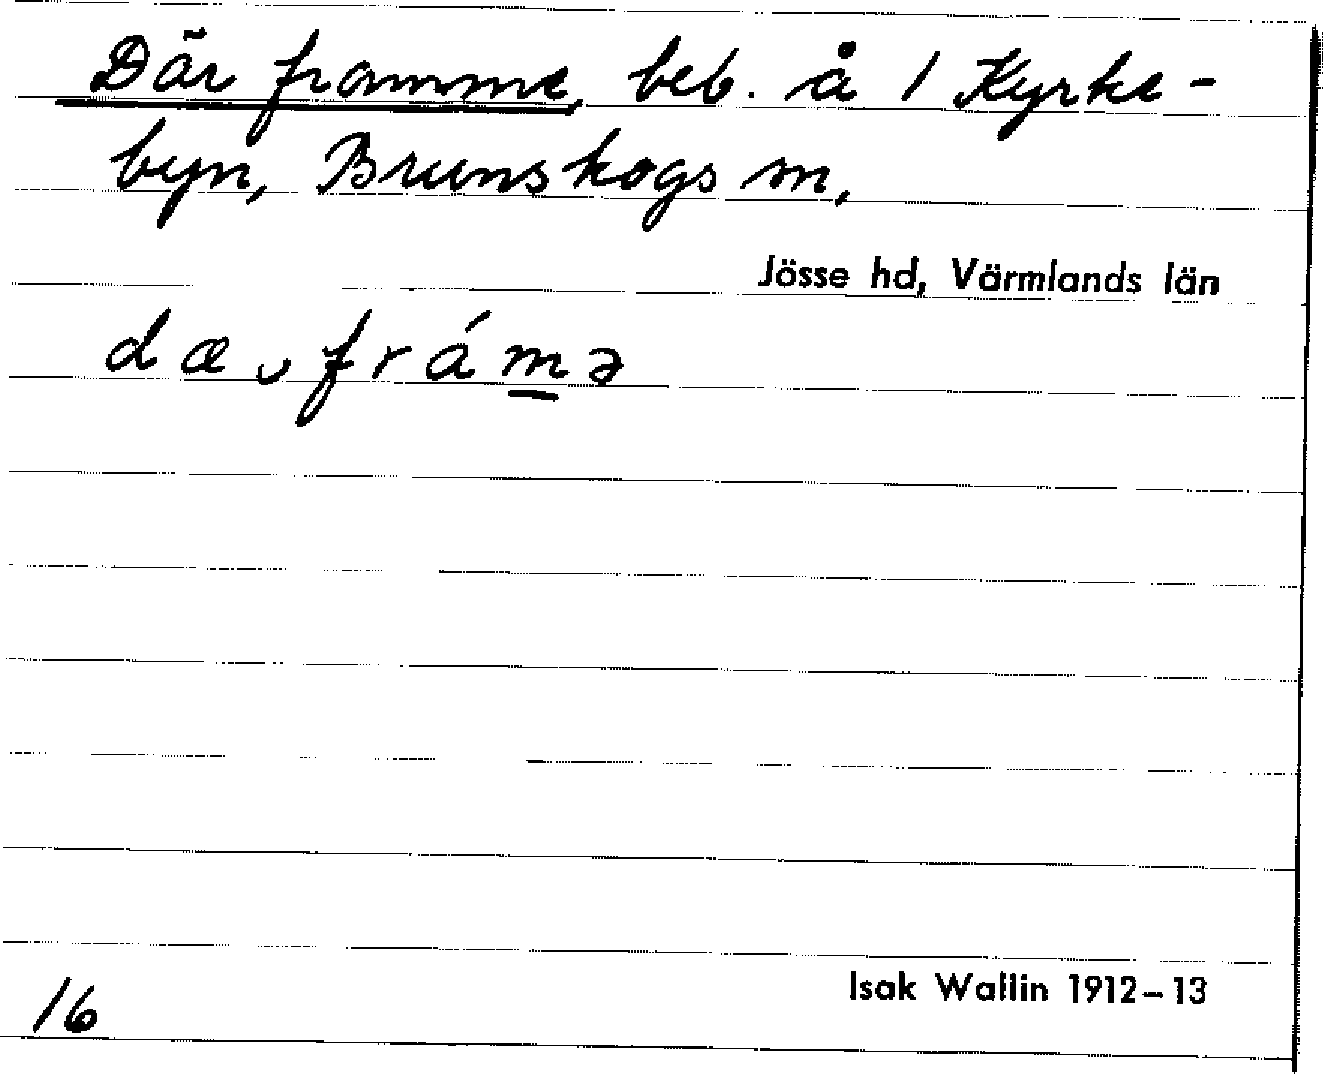 Där framme, beb. å 1 Kyrke-
byn, Brunskogs sn,
Jösse hd, Värmlands län
dæ frámə
16
Isak Wallin 1912–13